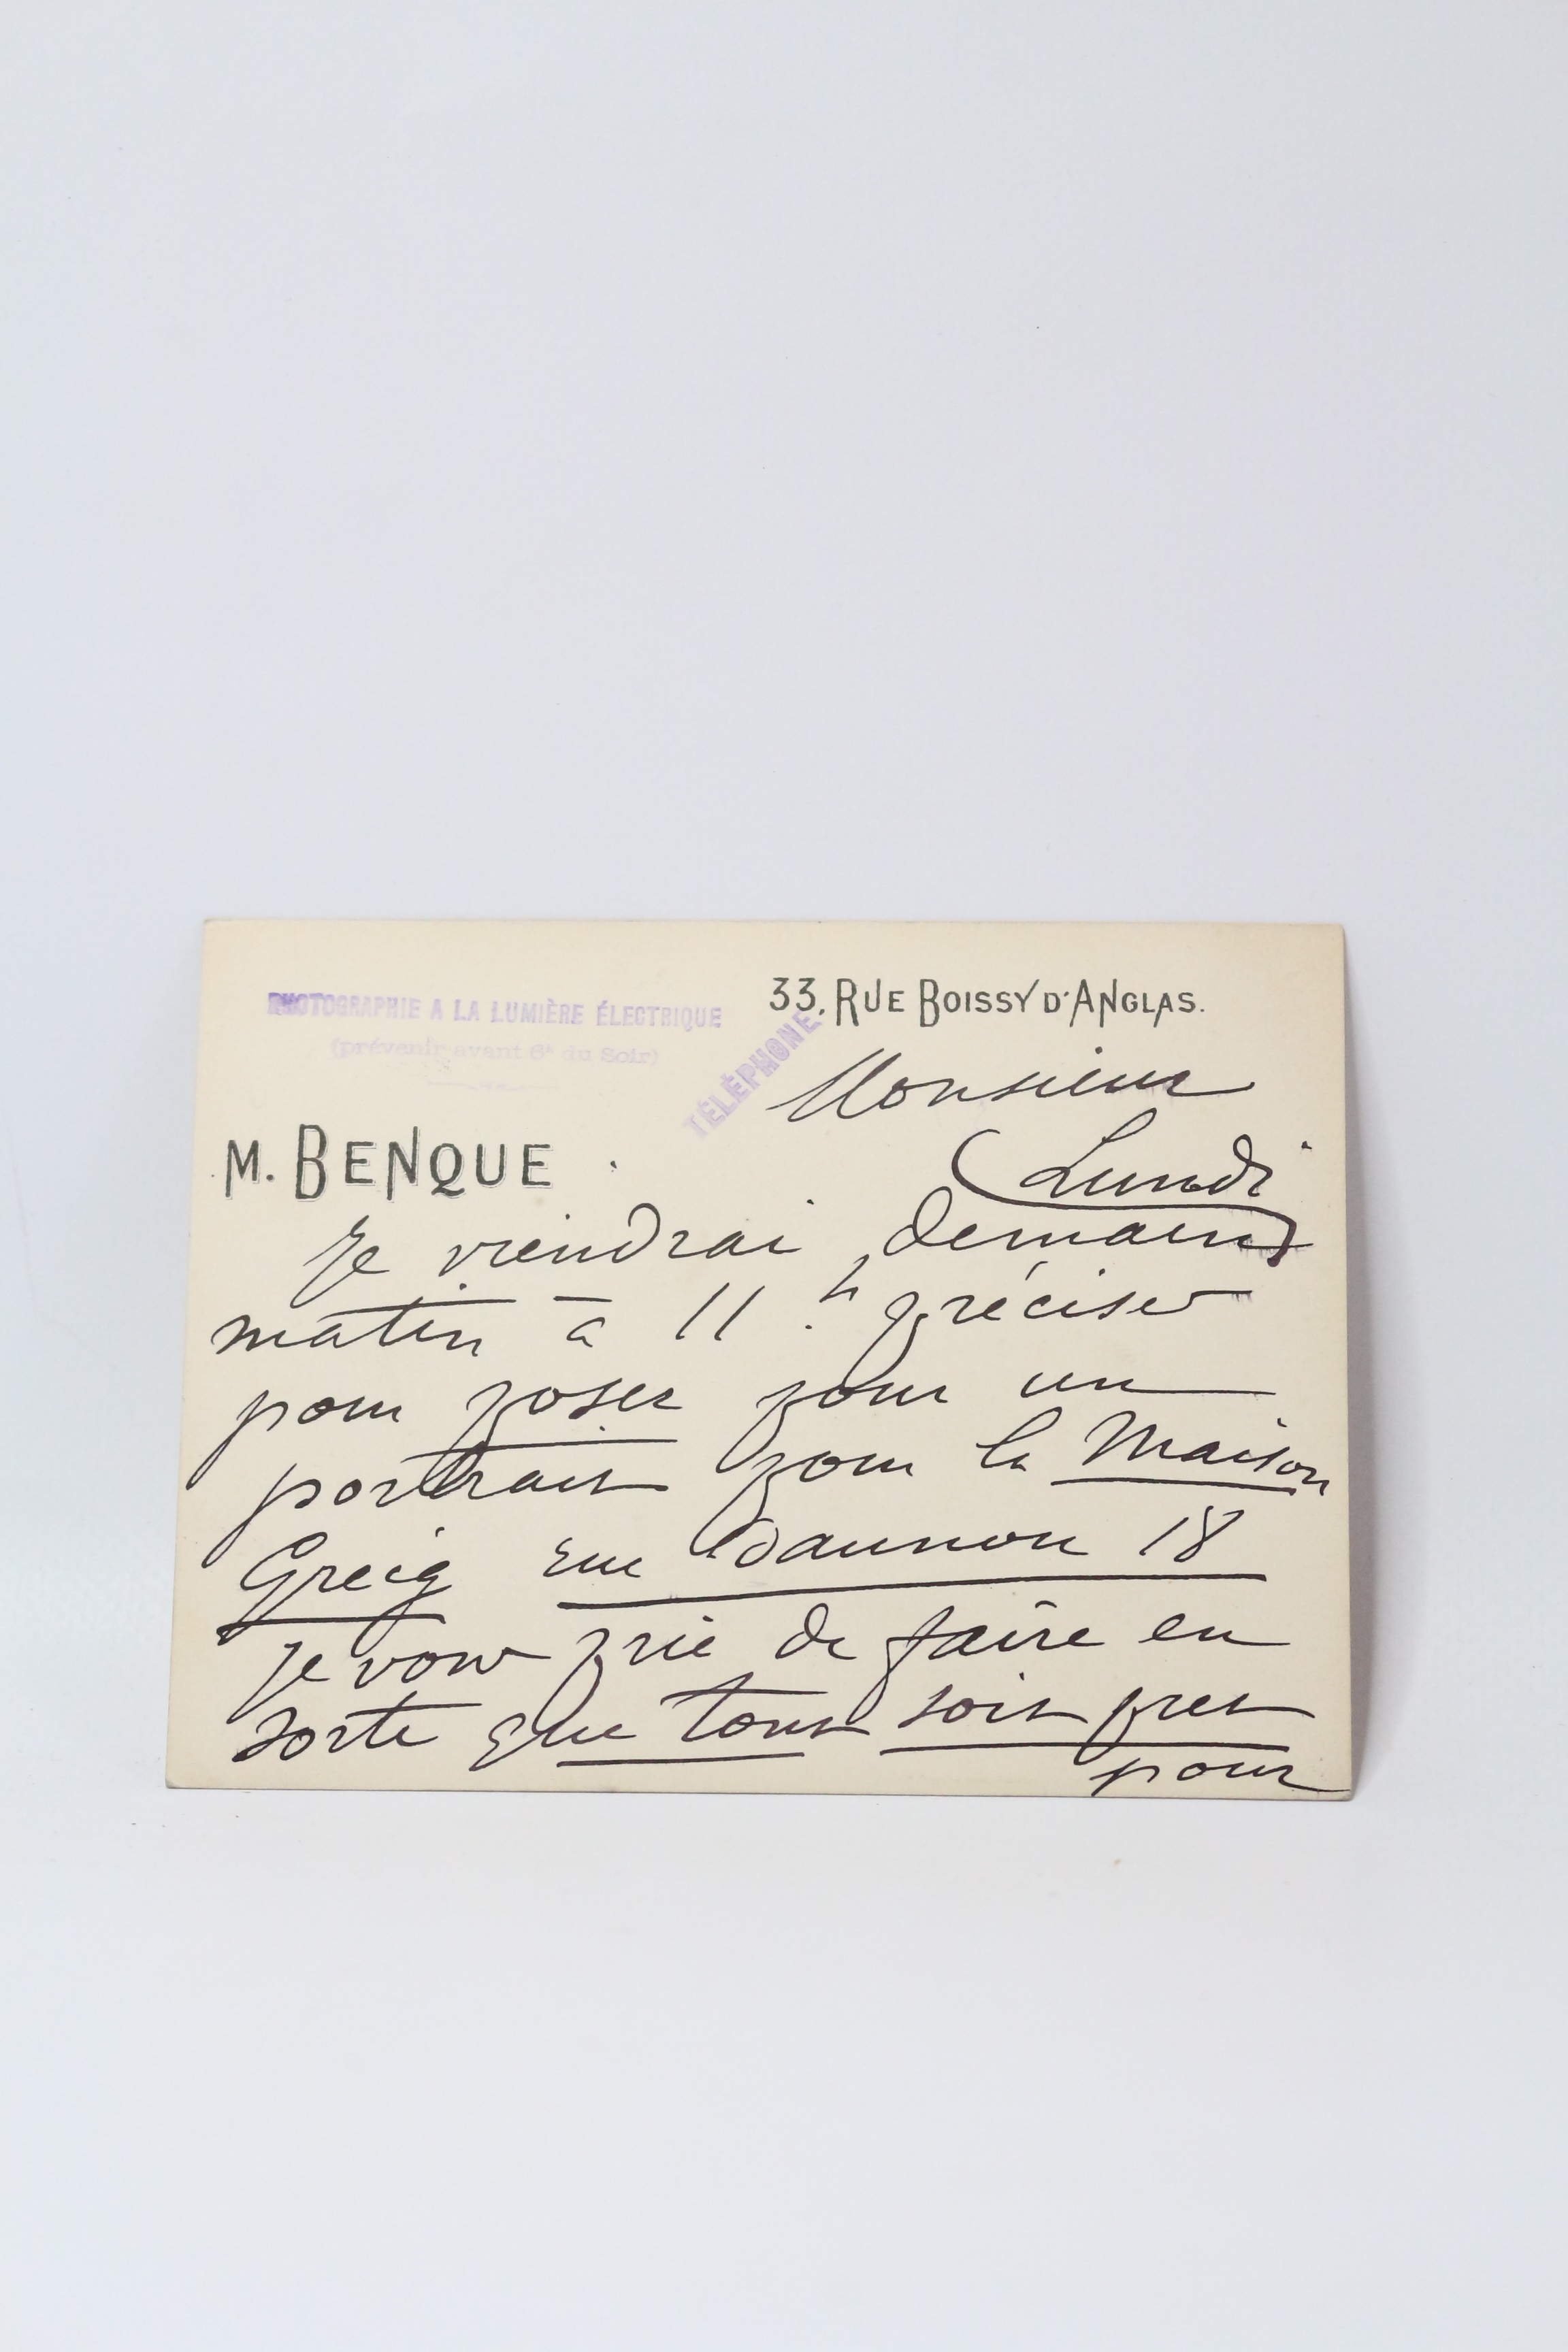 PHOTOGRAPHIE A LA LUMIÈRE ÉLECTRIQUE
(prévenir avant 6h du Soir)
TÉLÉPHONE
33, RUE BOISSY D'ANGLAS.
M. BENQUE
Monsieur
(Lundi)
Je viendrai demain
matin à 11 h précises
pour poser pour un
portrait pour la Maison
Greig rue Daunou 18
je vous prie de faire en
sorte que tout soit pret
pour